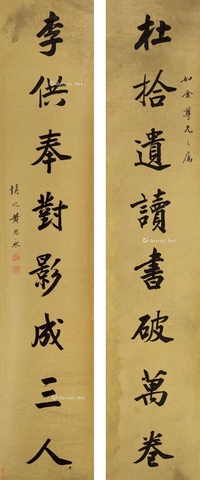 如金尊兄之屬
杜拾遺讀書破萬卷
李供奉對影成三人
慎之黃思永